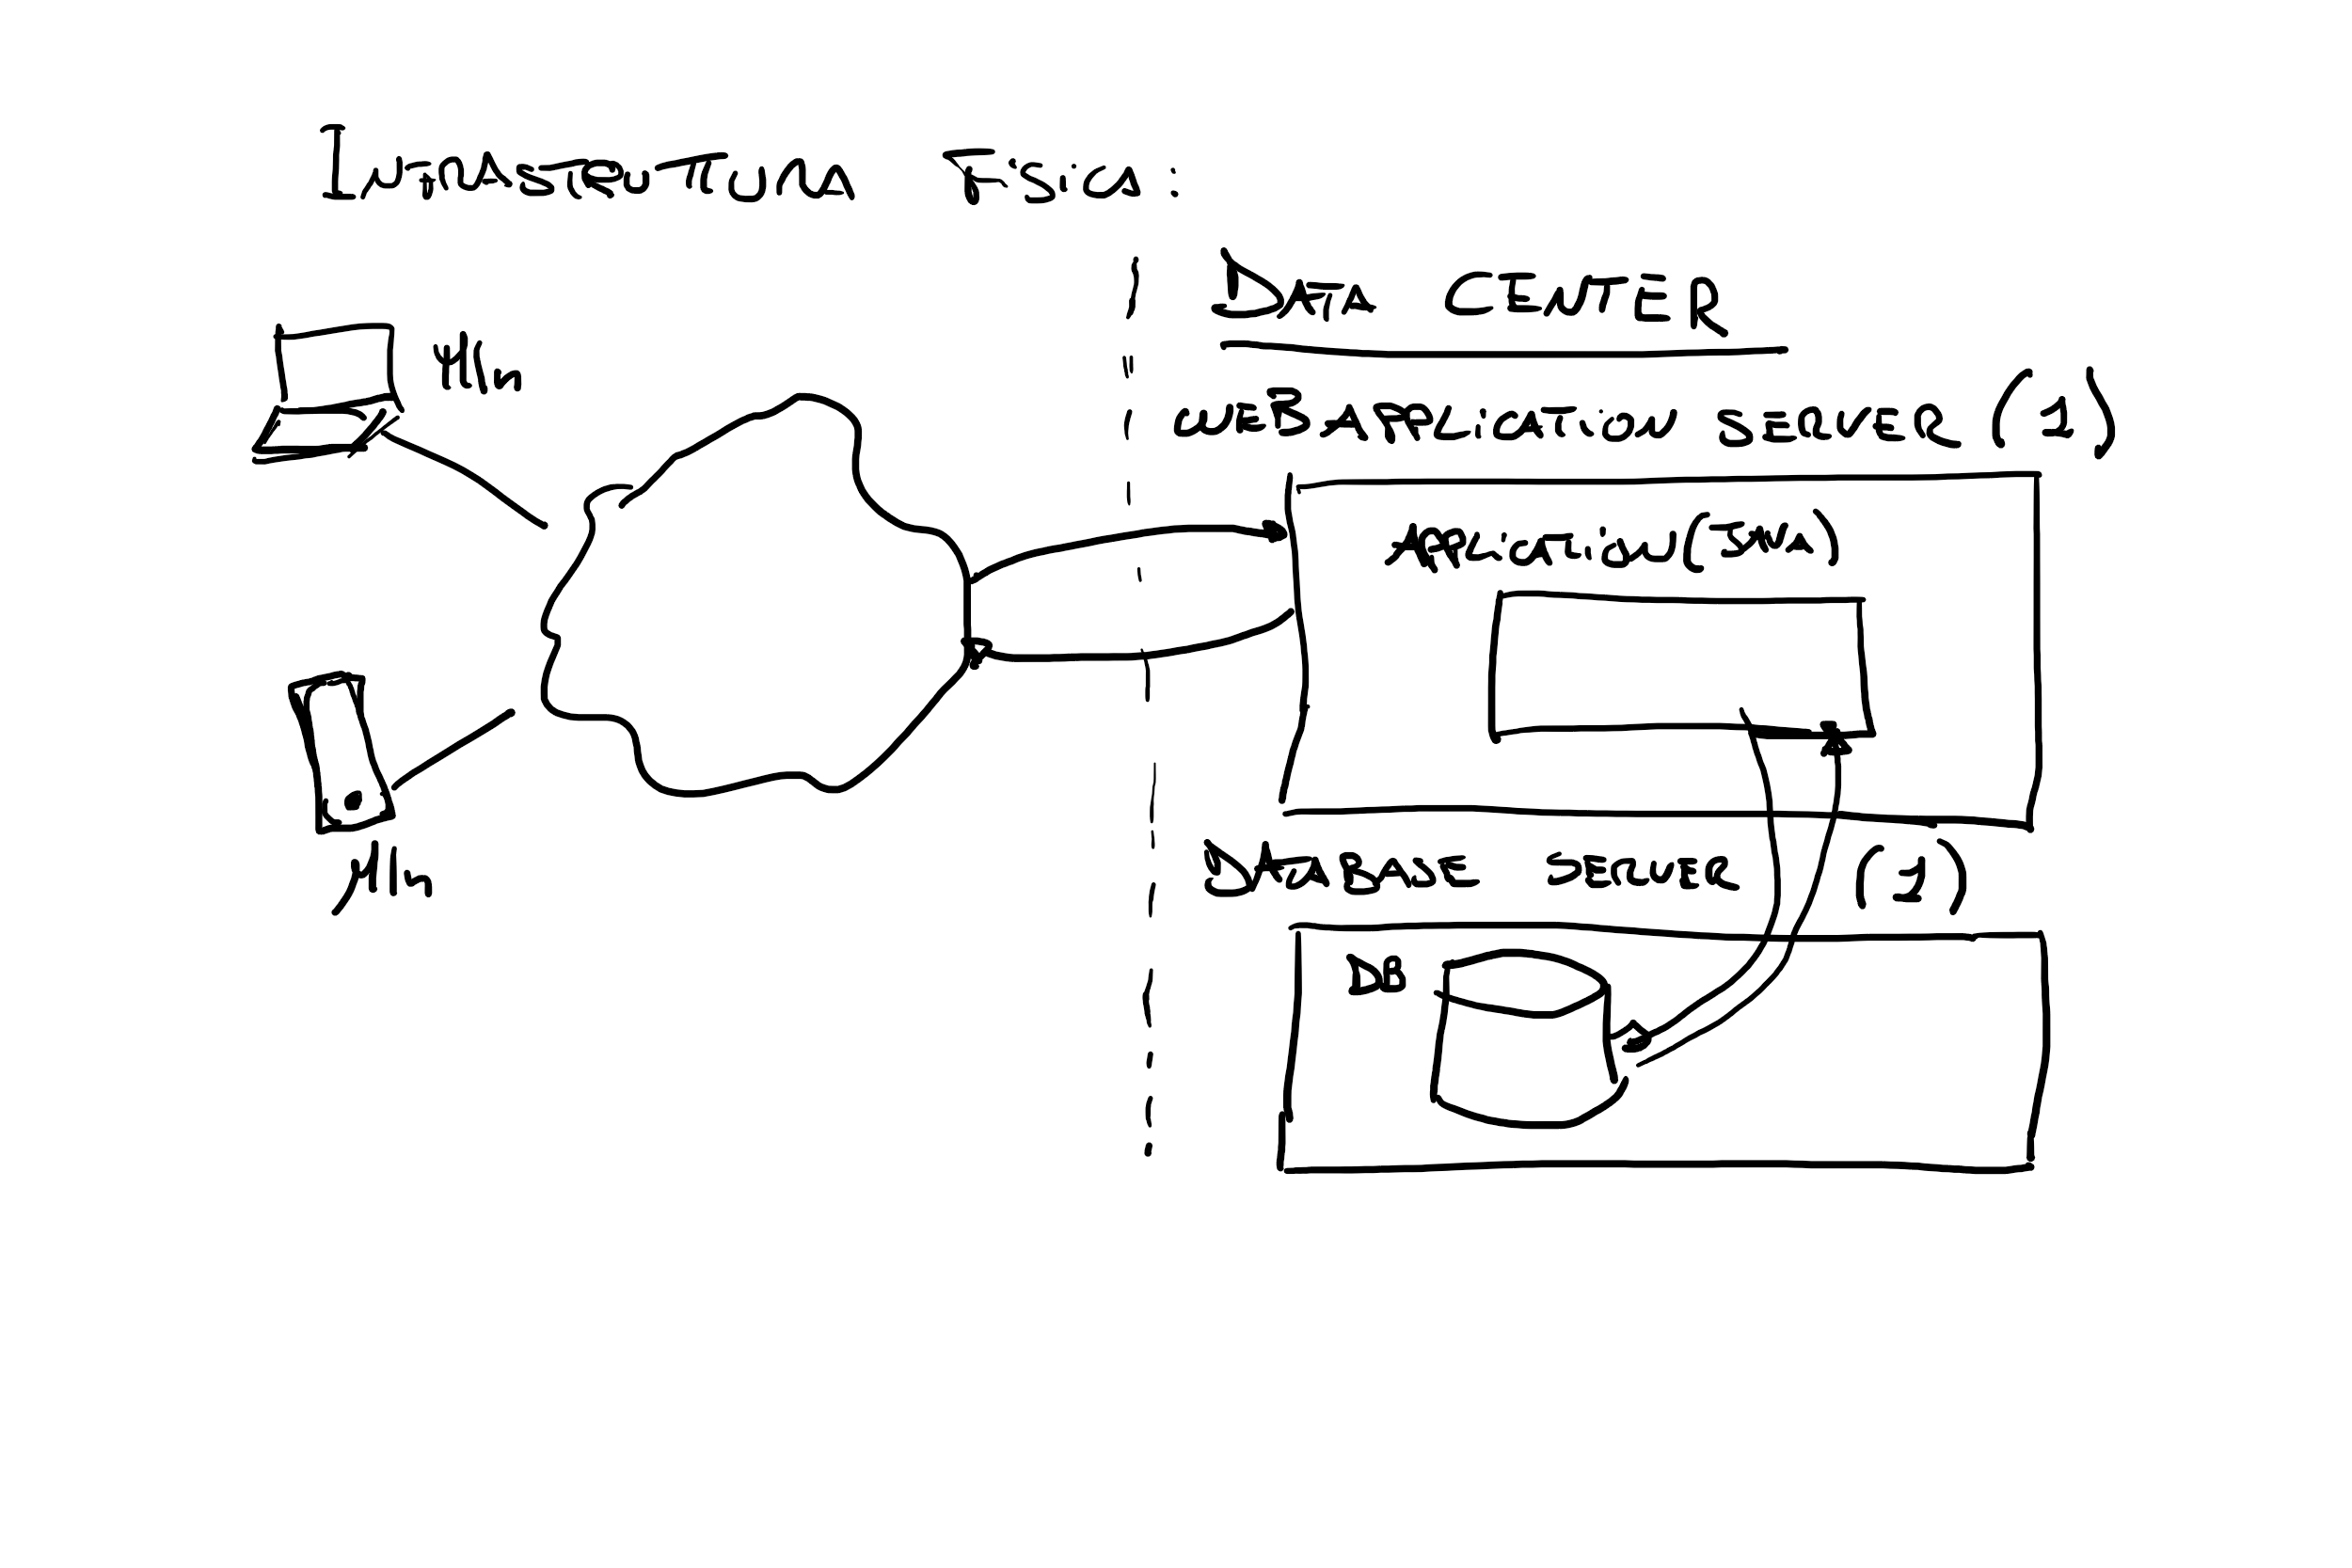 INFRAESTRUCTURA FÍSICA:
DATA CENTER
WEB APPLICATION SERVER (1)
APPLICATION (JAVA)
DATABASE SERVER (1)
DB